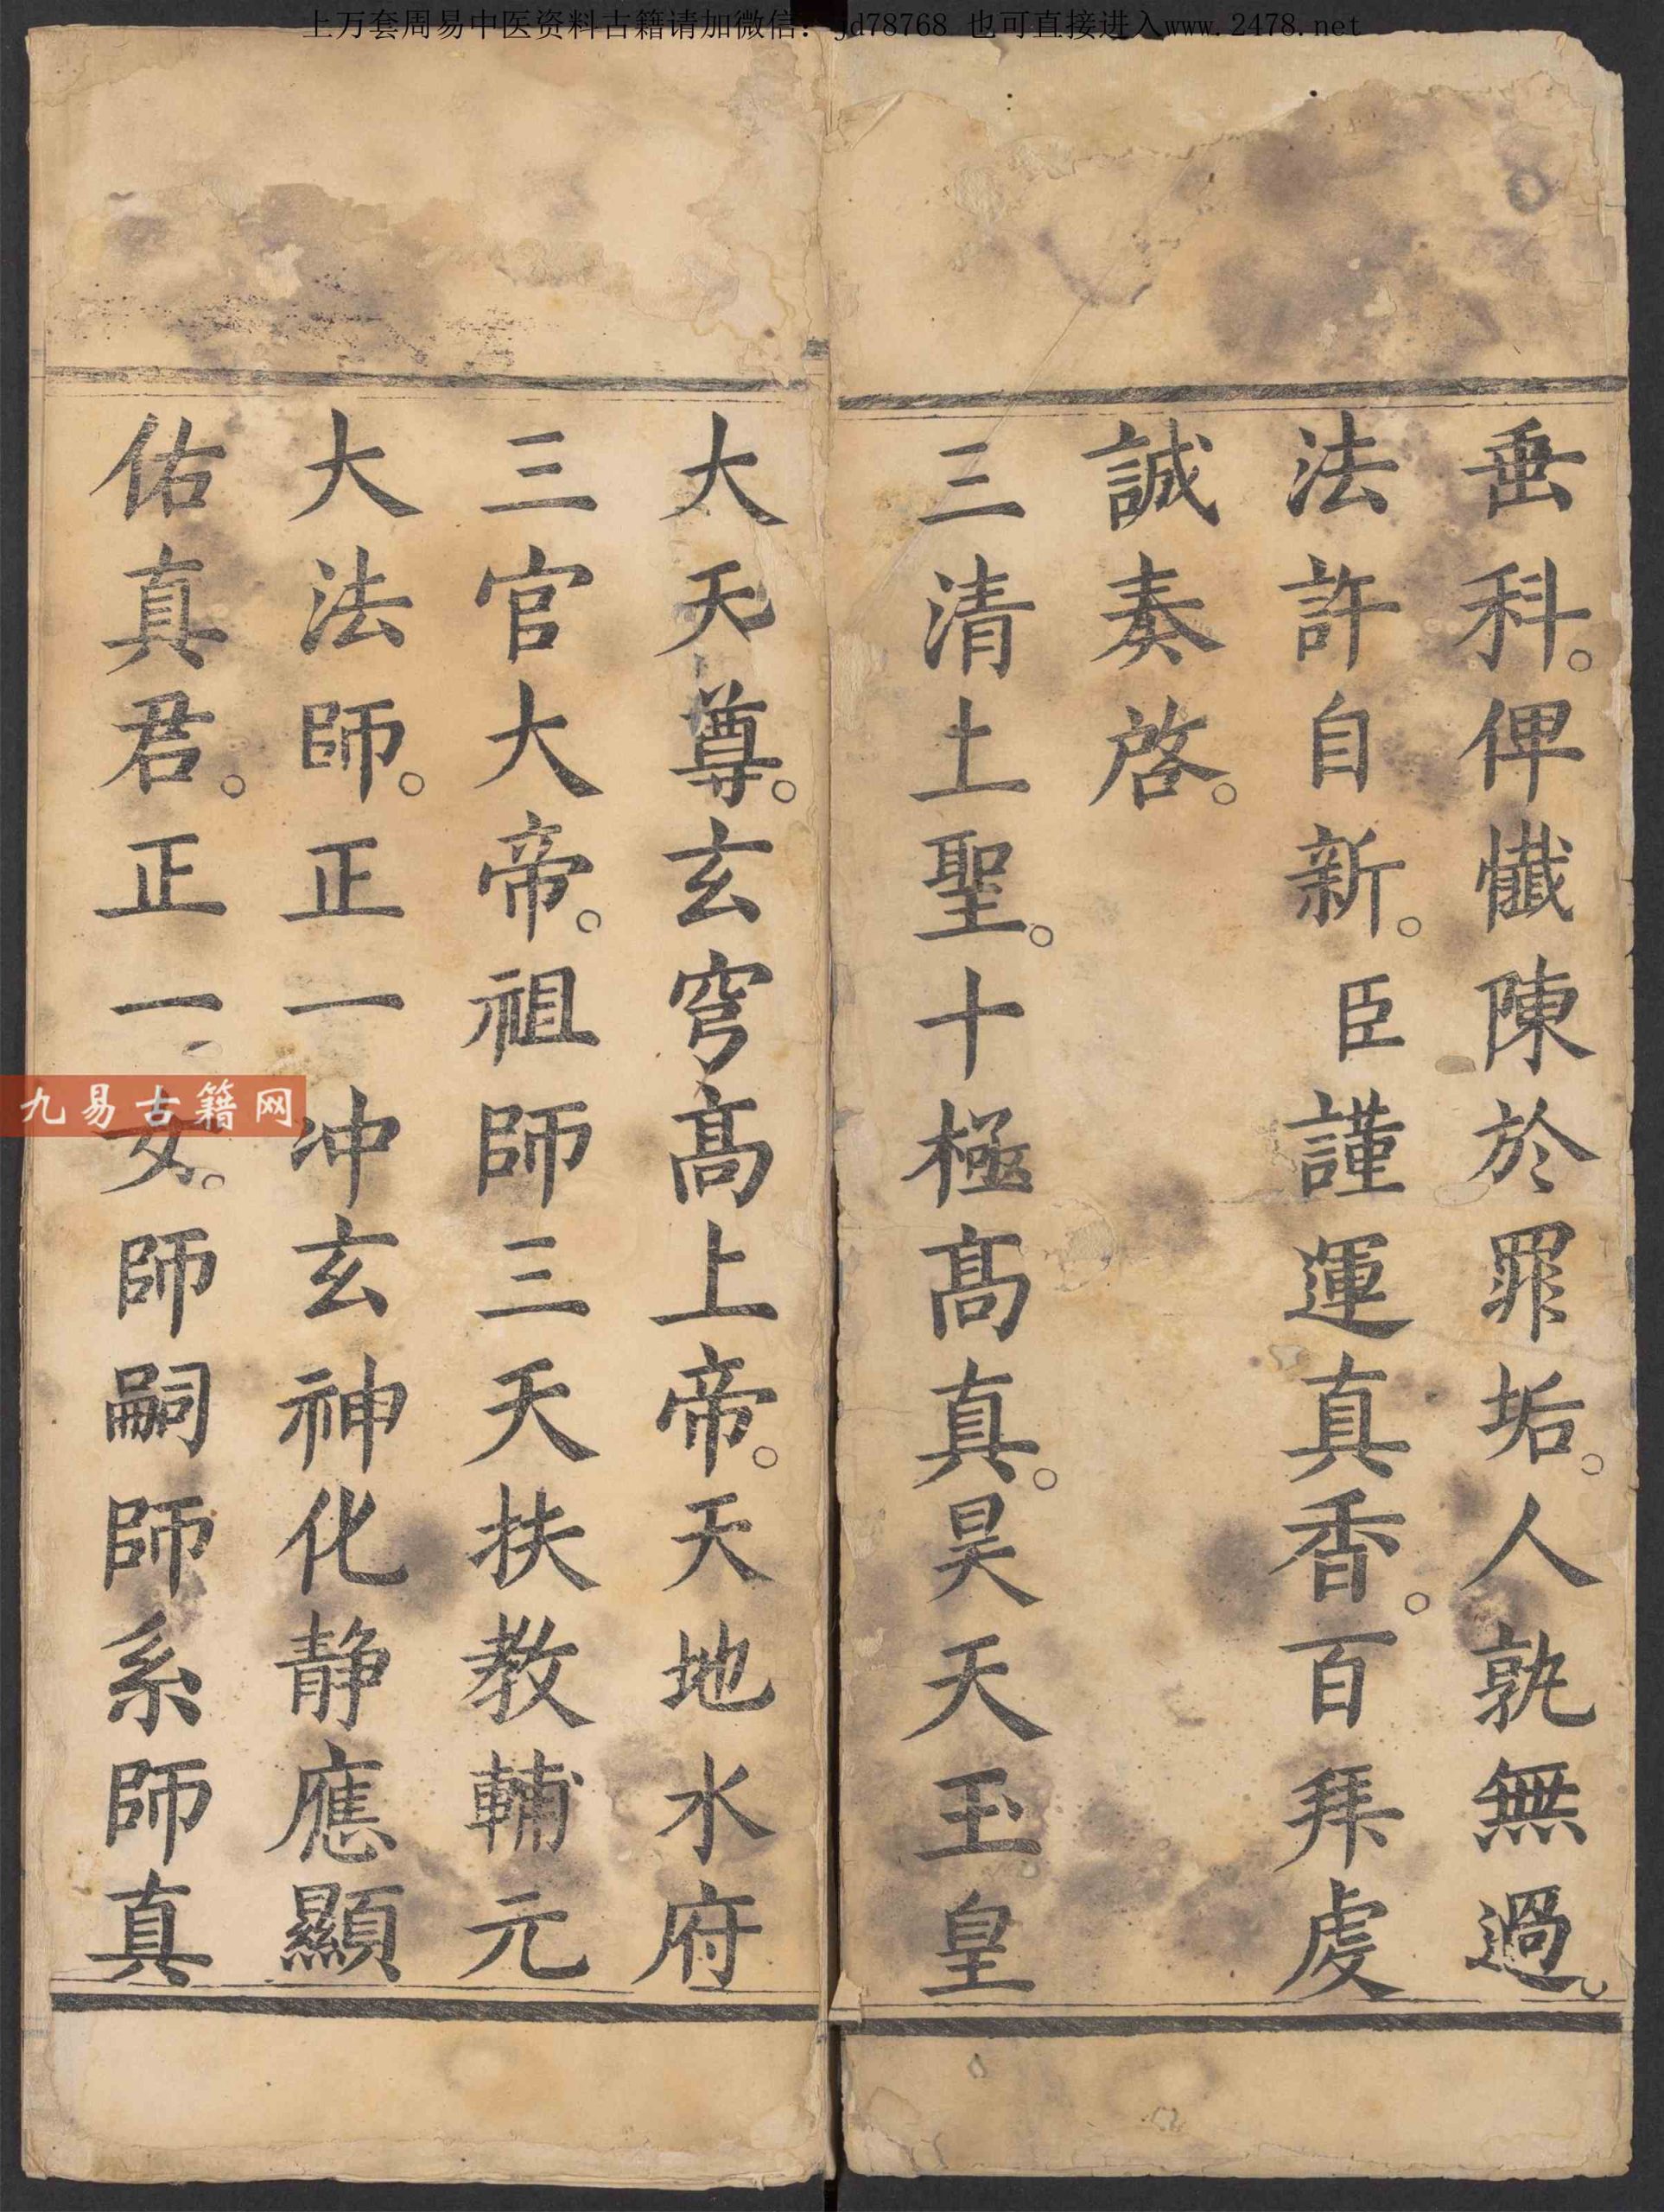 上万套周易中医资料古籍请加微信：jd78768 也可直接进入www.2478.net
垂科。俾懺陳於罪垢。人孰無過。
法許自新。臣謹運真香。百拜虔
誠奏啓。
三清上聖。十極髙真。昊天玉皇
大天尊。玄穹髙上帝。天地水府
三官大帝。祖師三天扶教輔元
大法師。正一冲玄神化靜應顯
佑真君。正一女。師嗣師系師真
九易古籍网